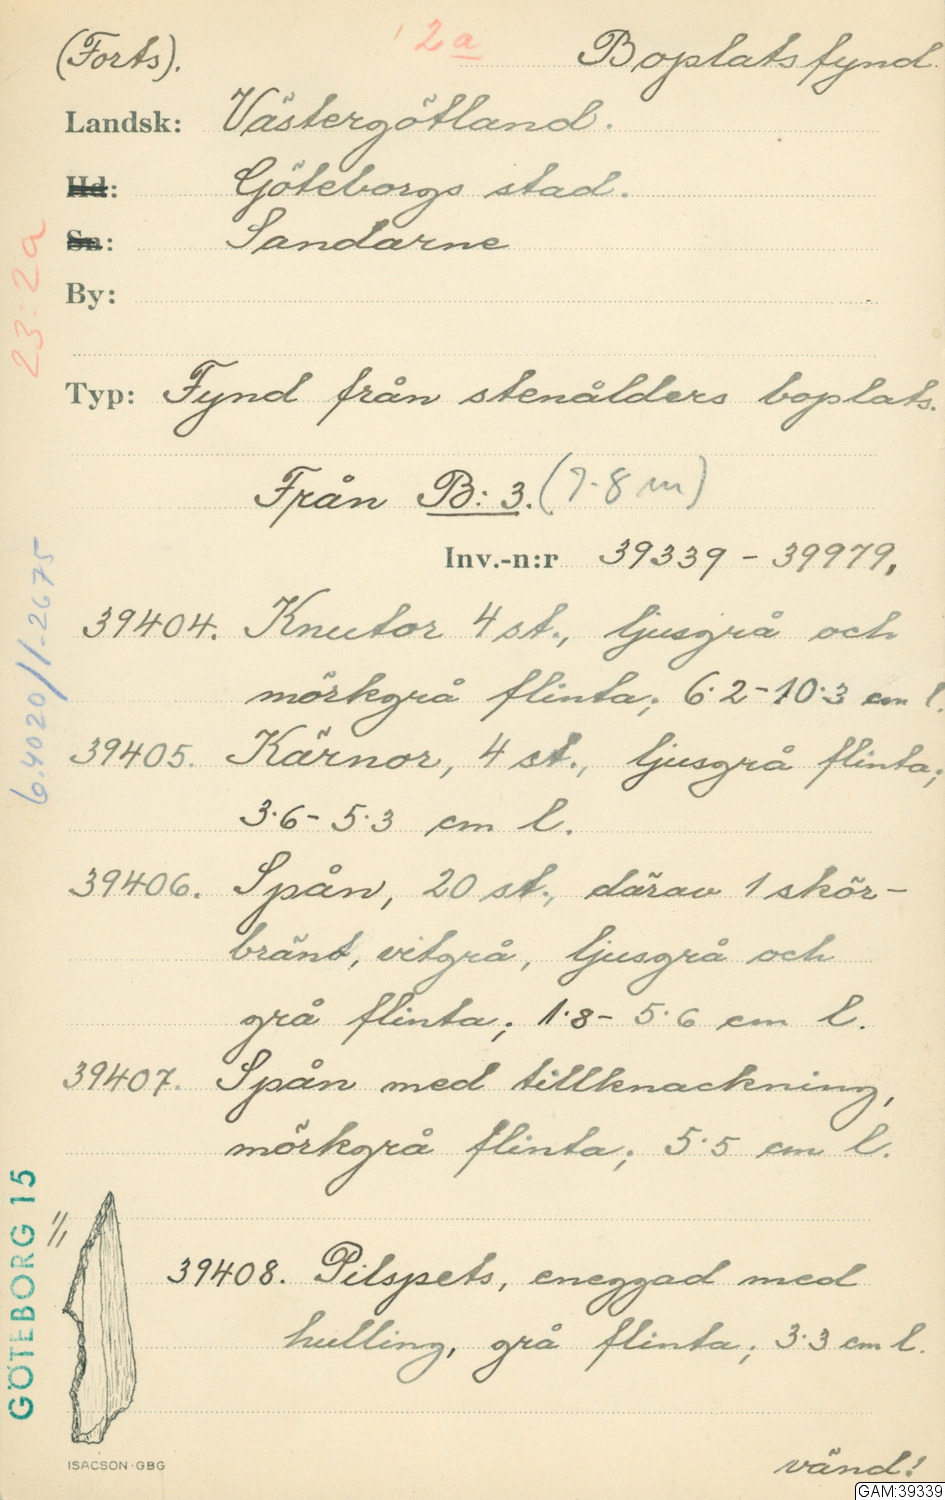 (Forts).
2a
Boplatsfynd
Landsk: Västergötland.
Hd: Göteborgs stad.
Sn: Sandarne
By:
Typ: Fynd från stenålders boplats.
Från B: 3. (7-8 m)
Inv.-n:r 39339 - 39979.
39404. Knutor 4 st., ljusgrå och
mörkgrå flinta; 6·2-10·3 cm l.
39405. Kärnor, 4 st., ljusgrå flinta;
3·6-5·3 cm l.
39406. Spån, 20 st., därav 1 skör-
bränt, vitgrå, ljusgrå och
grå flinta; 1·8-5·6 cm l.
39407. Spån med tillknackning,
mörkgrå flinta; 5·5 cm l.
1/1
39408. Pilspets, eneggad med
hulling, grå flinta; 3·3 cm l.
ISACSON·GBG
vänd!
GAM:39339
23:2a
6.4020//1-2675
GÖTEBORG 15